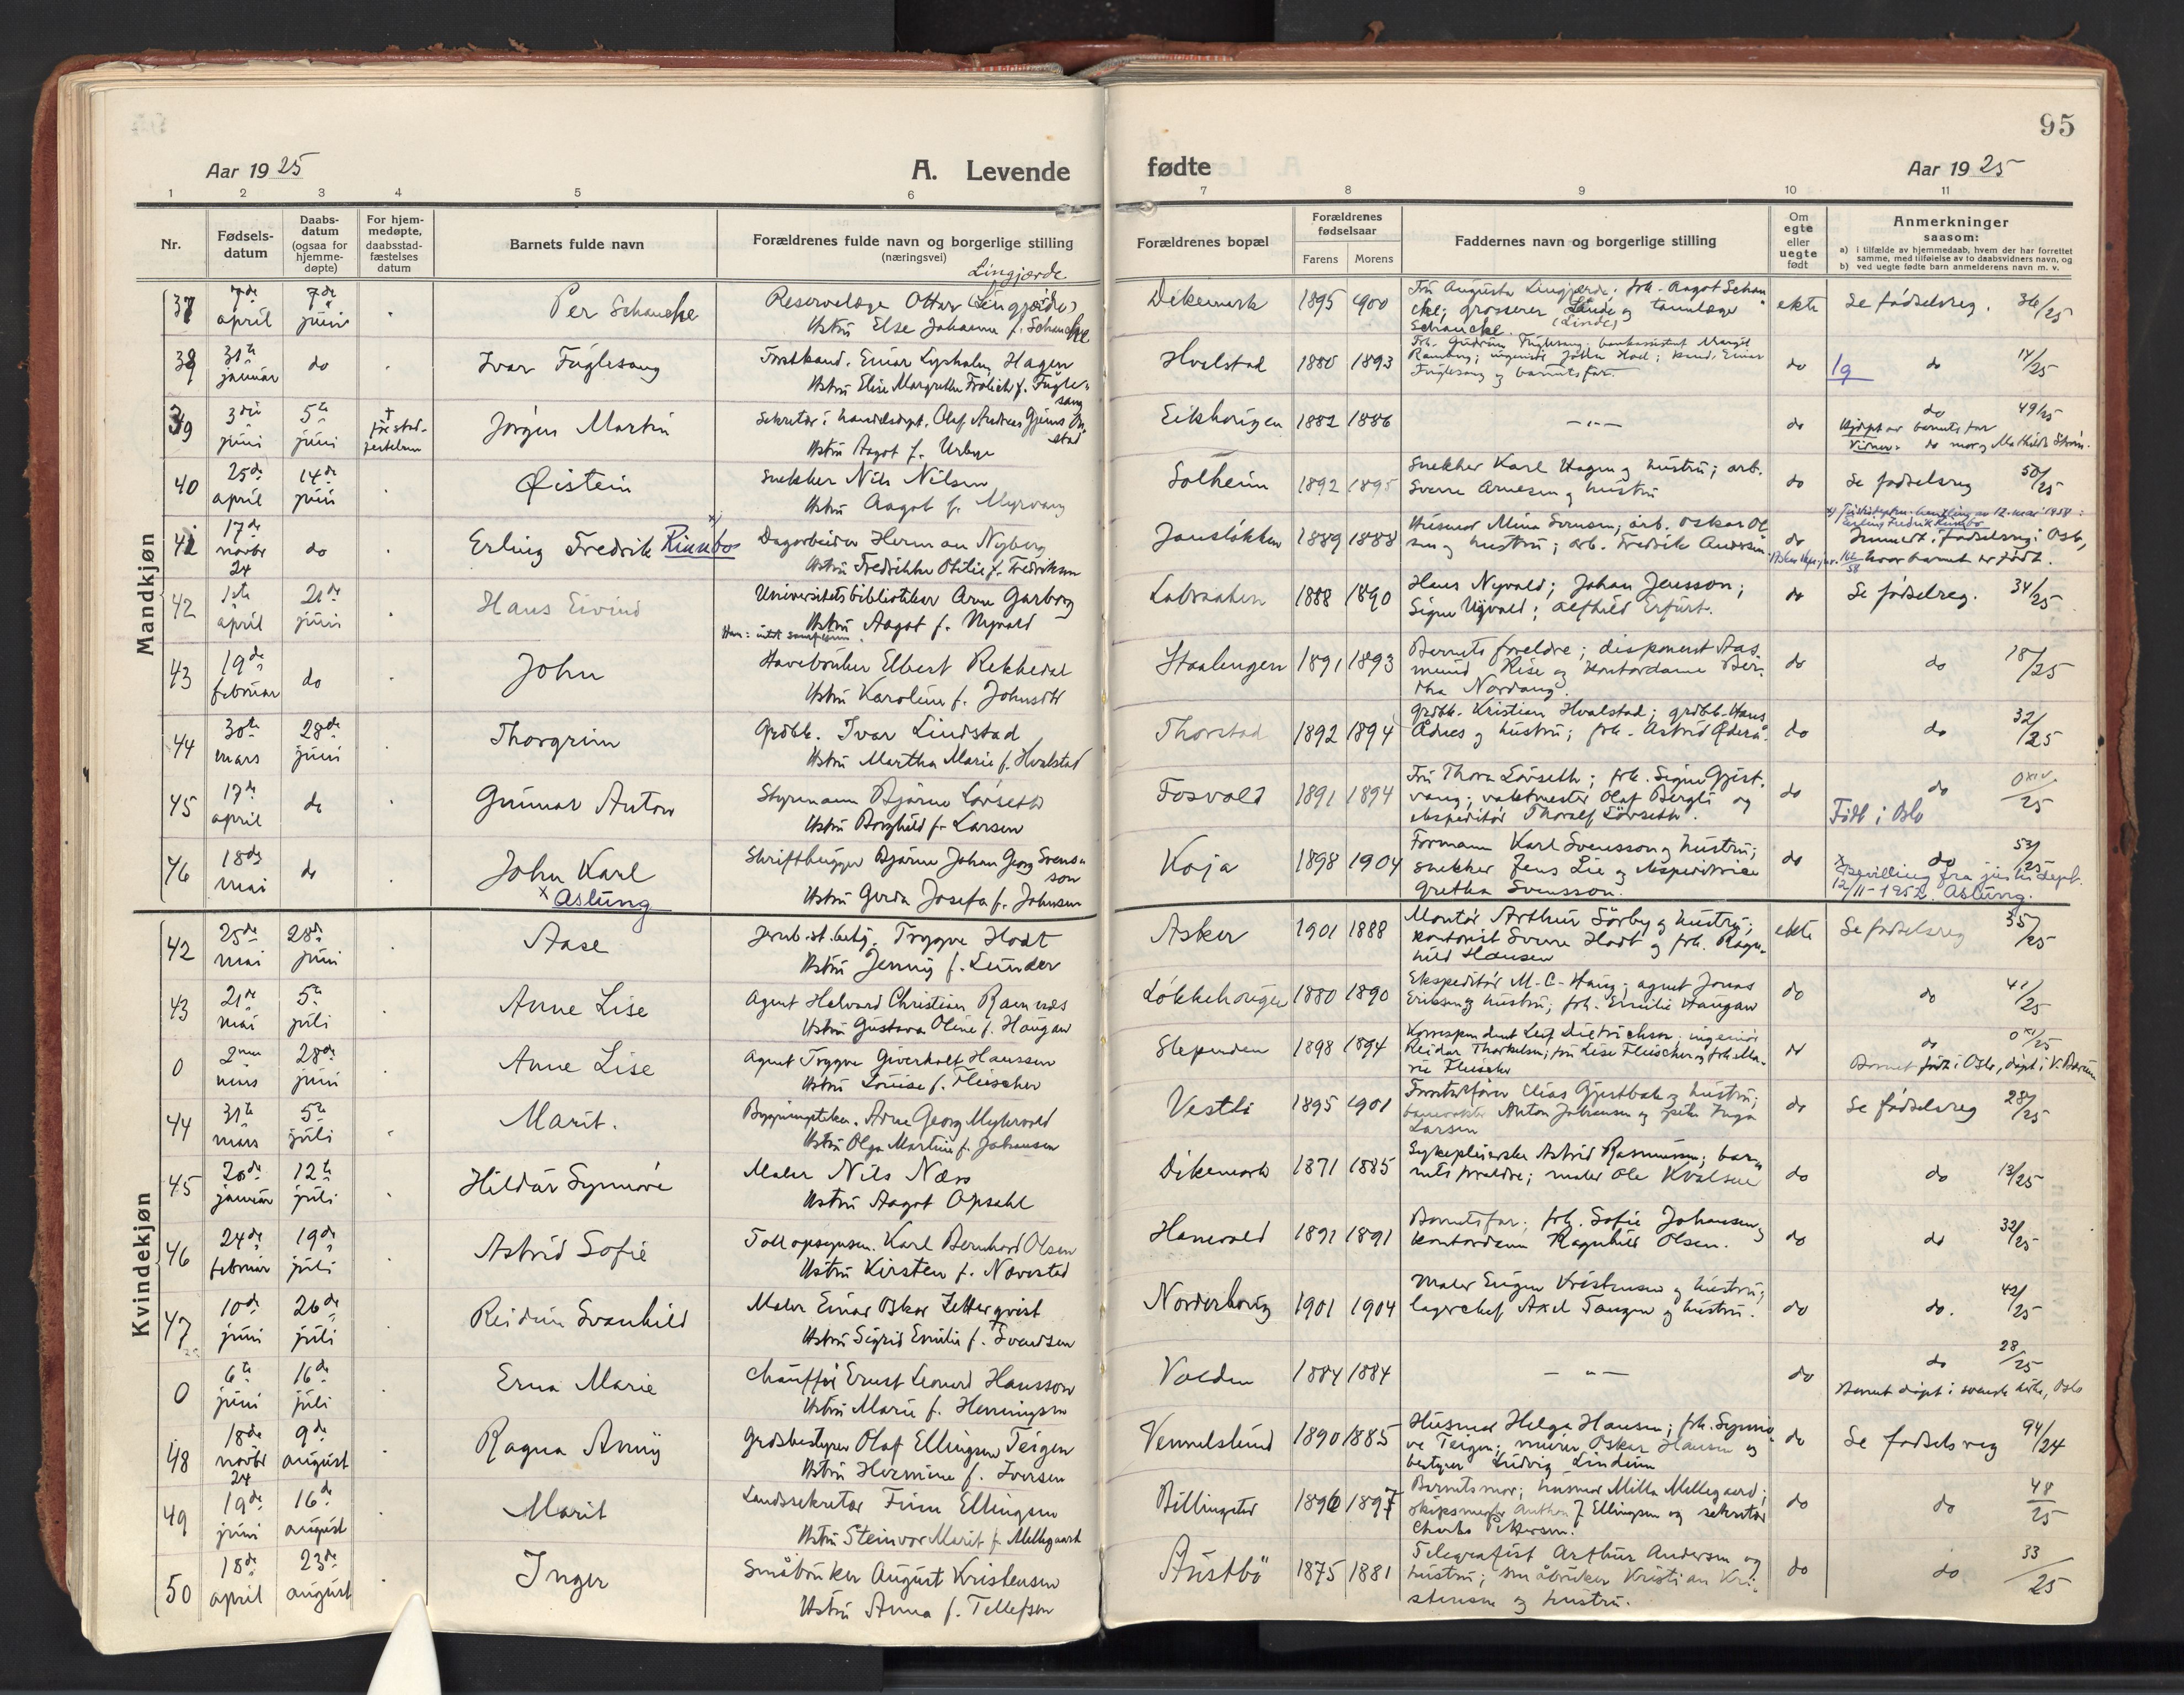 95
Aar 1925
A. Levende
fødte
Aar 1925
1 2 3 4 5 6 7 8 9 10 11
Nr.
Fødsels-
datum
Daabs-
datum
(ogsaa for
hjemme-
døpte)
For hjem-
medøpte,
daabsstad-
fæstelses
datum
Barnets fulde navn
Forældrenes fulde navn og borgerlige stilling
(næringsvei)
Forældrenes bopæl
Forældrenes
fødselsaar
Farens Morens
Faddernes navn og borgerlige stilling
Om
egte
eller
uegte
født
Anmerkninger
saasom:
a) i tilfælde av hjemmedaab, hvem der har forrettet
samme, med tilføielse av to daabsvidners navn, og
b) ved uegte fødte barn anmelderens navn m. v.
Mandkjøn
Lingjærde
37 7de april 7de juni Per Schanche
Reservelæge Ottar (Lingjærde)
Hstru Else Johanne f. Schanche
Dikemark 1895 1900
Fru Augusta Lingjærde; frk. Aagot Schan
che; grosserer Linde og tannlæge
Schancke. (Linde)
ekte Se fødselsreg. 36/25
38 31te januar do Ivar Fuglesang
Forstkand. Einar Lysholm Hagen
Hstru Elise Margrethe Frölich f. Fugle-
sang
Hvalstad 1880 1893
Frk. Gudrun Fuglesang; bankassistent Margit
Ramberg; ingeniør John Hoel; kand. Einar
Fuglesang og barnets far
do 19 do 14/25
39 3die juni 5te juni Jørgen Martin
Sekretær i handelsdept. Olaf Andreas Gjems On-
stad
Hstru Aagot f. Urbye
Eikhaugen 1882 1886 — " — do
do 49/25
Hjdøpt av barnets far
Vidner: do mor og Mathilde Strøm.
40 25de april 14de juni Øistein
Snekker Nils Nilsen
Hstru Aagot f. Myrvang
Solheim 1892 1895
Snekker Karl Hagen og hustru; arb.
Sverre Arnesen og hustru
do Se fødselsreg 50/25
41 17de novbr 24 do Erling Fredrik Rimbo x)
Dagarbeider Herman Nyberg
Hstru Fredrikke Otilie f. Fredriksen
Jansløkken 1889 1888
Husmor Mina Svensen; arb. Oskar Ol
sen og hustru; arb. Fredrik Andersen
do
Erling Fredrik Rimbo
Innmeldt i fødselsreg i Oslo,
hvor barnet er født.
42 1ste april 21de juni Hans Eivind
Universitetsbibliotekar Arne Garborg
Hstru Aagot f. Nyvald
Labraaten 1888 1890
Hans Nyvald; Johan Jensson;
Signe Nyvald; Alfhild Erfurt.
do Se fødselsreg. 34/25
43 19de februar do John
Havebruker Elbert Rekkedal
Hstru Karoline f. Johnsdtr
Haalengen 1891 1893
Barnets foreldre; disponent Aas
mund Rise og kontordame Ber-
tha Nordang.
do do 18/25
44 30te mars 28de juni Thorgrim
Grdbr. Ivar Lindstad
Hstru Martha Marie f. Hvalstad
Thorstad 1892 1894
grdbr. Kristian Hvalstad; grdbr. Hans
Ådnes og hustru; frk. Astrid Ødera.
do do 32/25
45 17de april do Gunnar Anton
Styrmann Bjarne Løvseth
Hstru Borghild f. Larsen
Fosvold 1891 1894
Fru Thora Løvseth; frk. Signe Gjest-
vang; vaktmester Olaf Bergli og
ekspeditør Thoralf Løvseth.
do do 0 XIV/25
Født i Oslo
46 18de mai do John Karl
x Aslung
Skriftbygger Bjarne Johan Georg Svens-
son
Hstru Gerda Josefa f. Johnsen
Koja 1898 1904
Formann Karl Svensson og hustru;
snekker Jens Lie og ekspeditrise
Gretha Svensson.
do do 53/25
x Bevilling fra justisdept.
12/11-1952. Aslung.
Kvindekjøn
42 25de mai 28de juni Aase
Jernb.st.betj. Trygve Hodt
Hstru Jenny f. Lunder
Asker 1901 1888
Montør Arthur Sørby og hustru;
kontorist Sverre Hodt og frk. Ragn-
hild Hansen
ekte Se fødselsreg 35/25
43 21de mai 5te juli Anne Lise
Agent Halvard Christian Ramnæs
Hstru Gustava Oline f. Haugan
Løkkehaugen 1880 1890
Ekspeditør M. C. Haug; agent Jonas
Eriksen og hustru; frk. Emilie Haugan
do do 41/25
0 2nen mars 28de juni Anne Lise
Agent Trygve Giverholt Hanssen
Hstru Louise f. Fleischer
Slependen 1898 1894
Korrespondent Leif Dietrichson; ingeniør
Reidar Thorkelsen; fru Lise Fleischer og frk. Ma-
rie Fleischer
do do 0 XI/25
Barnet født i Oslo, døpt i V. Bærum
44 31te mars 5te juli Marit.
Bygningstekn. Arne Georg Myhrvold
Hstru Olga Martine f. Johansen
Vestli 1895 1901
Forretnfører Elias Gjestbak og hustru;
banevokter Anton Johansen og pike Inga
Larsen
do Se fødselsreg 28/25
45 20de januar 12te juli Hildur Synnøve
Maler Nils Næss
Hstru Aagot Opsahl
Dikemark 1871 1885
Sykepleierske Astrid Rasmussen; bar-
nets foreldre; maler Ole Kvalsue
do do 13/25
46 24de februar 19de juli Astrid Sofie
Tollopsynsm. Karl Bernhard Olsen
Hstru Kirsten f. Navestad
Hanevold 1891 1891
Barnets far; frk. Sofie Johansen og
kontordame Ragnhild Olsen.
do do 32/25
47 10de juni 26de juli Reidun Svanhild
Maler Einar Oskar Zetterqvist
Hstru Sigrid Emilie f. Svendsen
Norderhaug 1901 1904
Maler Eugen Kristensen og hustru;
lagerchef Axel Tangen og hustru.
do do. 42/25
0 6te juni 16de juli Erna Marie
Chauffør Ernst Leonard Hansson
Hstru Marie f. Henningsen
Volden 1884 1884 — " — do do 28/25
Barnet døpt i svenske kirke, Oslo
48 18de novbr 24 9de august Ragna Anny
Grdsbestyrer Olaf Ellingsen Teigen
Hstru Hermine f. Iversen
Vennelslund 1890 1885
Husmor Helga Hansen; frk. Synnø
ve Teigen; murer Oskar Hansen og
bestyrer Ludvig Lindium
do Se fødselsreg 94/24
49 19de juni 16de august Marit
Landssekretær Finn Ellingsen
Hstru Steinvor Marit f. Mellegaard
Billingstad 1896 1897
Barnets mor; husmor Milla Mellegaard;
skipsmegler Anthon J Ellingsen og sekretær
Charles Pettersen.
do do 48/25
50 18de april 23de august Inger
Småbruker August Kristensen
Hstru Anna f. Tellefsen
Austbö 1875 1881
Telegrafist Arthur Andersen og
hustru; småbruker Kristian Kri-
stensen og hustru.
do do 33/25